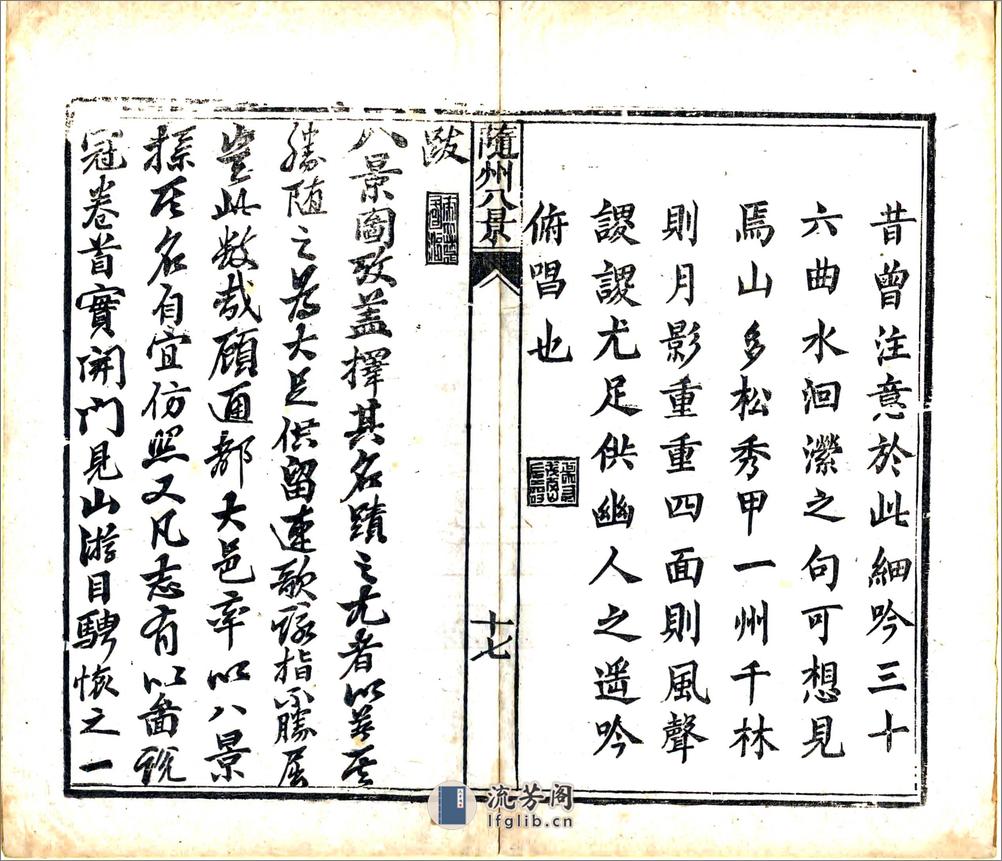 昔曾注意於此細吟三十
六曲水洄瀠之句可想見
焉山多松秀甲一州千林
則月影重重四面則風聲
謖謖尤足供幽人之遥吟
俯唱也
隨州八景
十七
跋
八景圖攷盖擇其名蹟之尤者以着其
勝隨之為大足供留連歌詠指不勝屈
豈此数哉顧通都大邑率以八景
摽其名自宜仿照又凡志有以畵說
冠卷首實開門見山游目騁懷之一
流芳阁
lfglib.cn